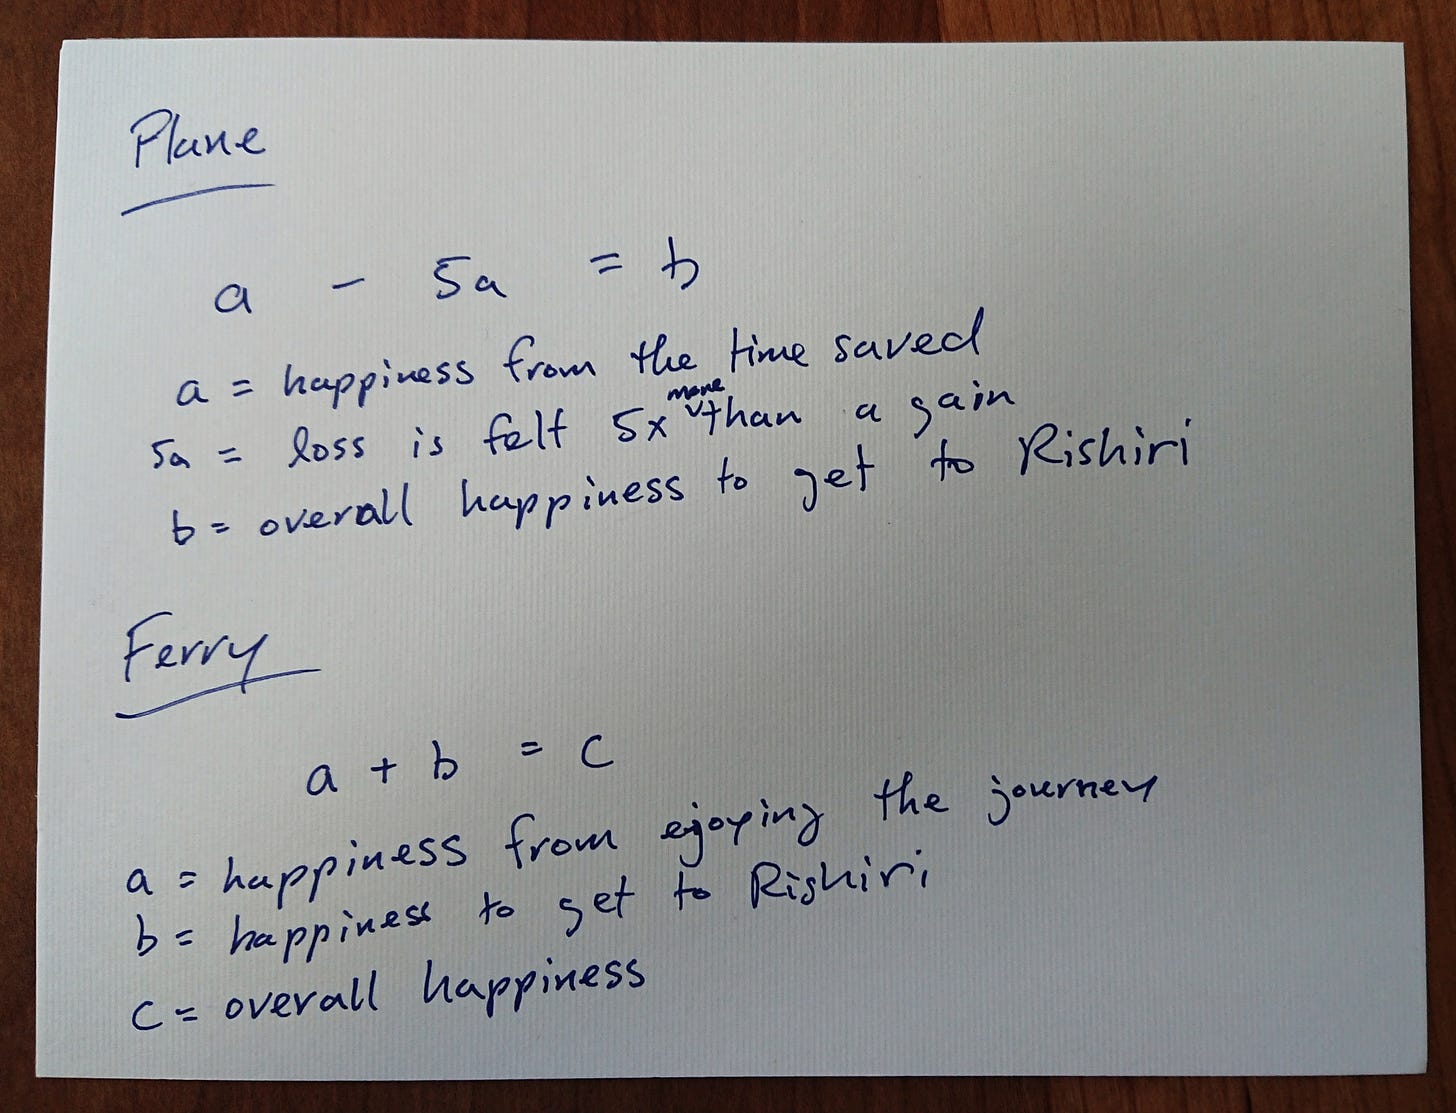 Plane
a - 5a = b
a = happiness from the time saved
5a = loss is felt 5x more than a gain
b = overall happiness to get to Rishiri
Ferry
a + b = c
a = happiness from ejoying the journey
b = happiness to get to Rishiri
c = overall happiness